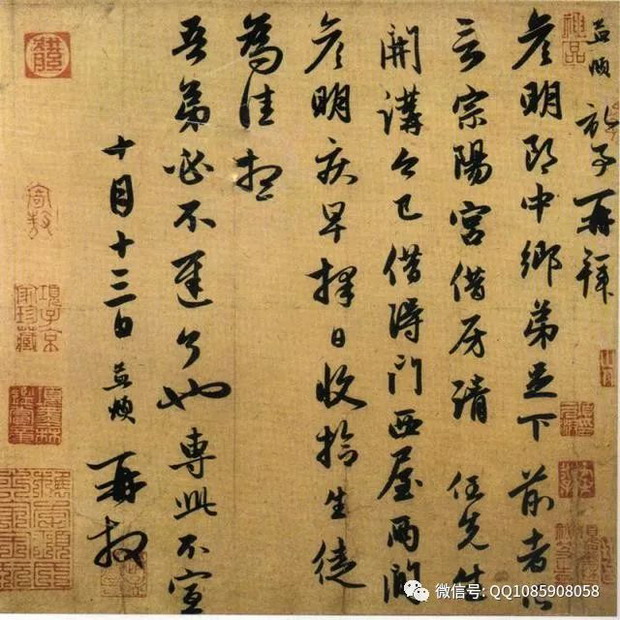 孟頫 再拜
彥明郎中鄉弟足下前者所
言宗陽宮借房請 任先生
開講今已借得門西屋兩間
彥明疾早擇日收拾生徒
為佳想
吾弟必不遲了也專此不宣
十月十三日孟頫再拜
項子京家珍藏
微信号: QQ1085908058